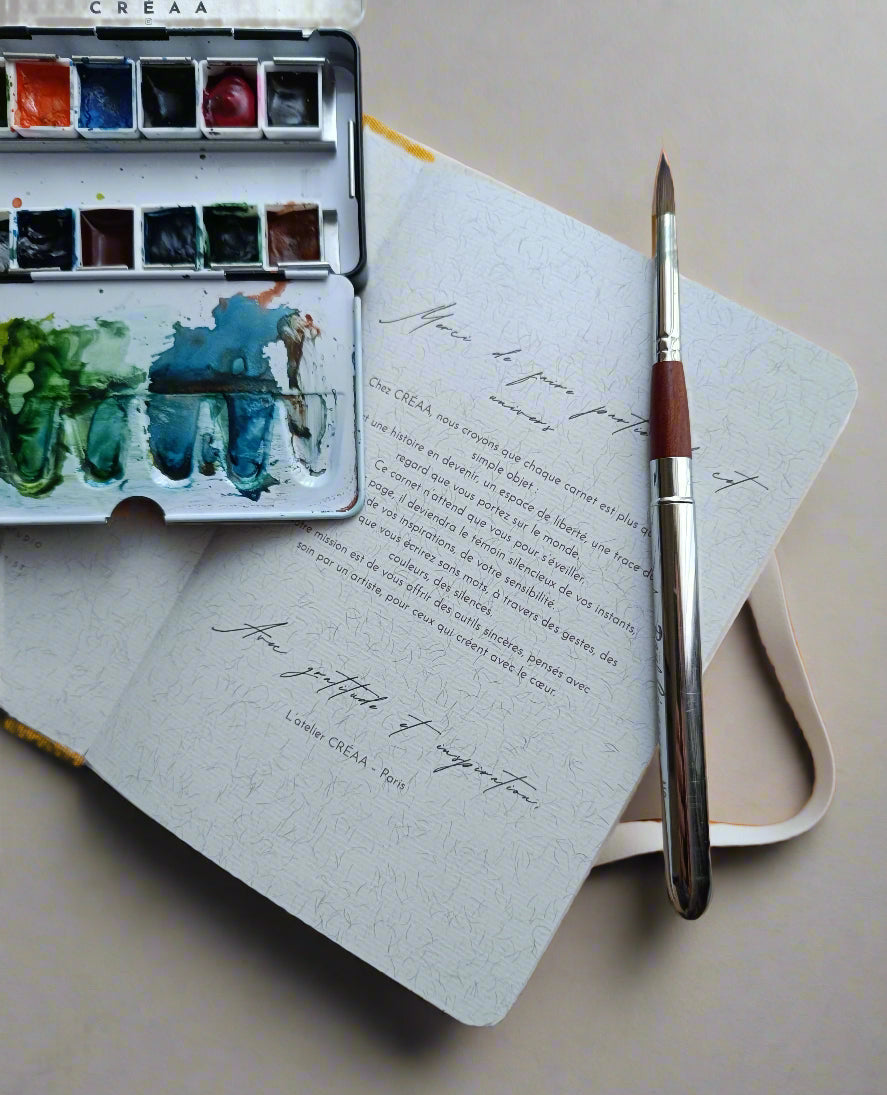 CRÉAA
Merci de faire partie
univers
Chez CRÉAA, nous croyons que chaque carnet est plus
simple objet :
une histoire en devenir, un espace de liberté, une trace
regard que vous portez sur le monde.
Ce carnet n'attend que vous pour s'éveiller.
page, il deviendra le témoin silencieux de vos instants,
de vos inspirations, de votre sensibilité.
que vous écrirez sans mots, à travers des gestes, des
couleurs, des silences.
mission est de vous offrir des outils sincères, pensés avec
soin par un artiste, pour ceux qui créent avec le cœur.
Avec gratitude et inspiration,
L'atelier CRÉAA - Paris